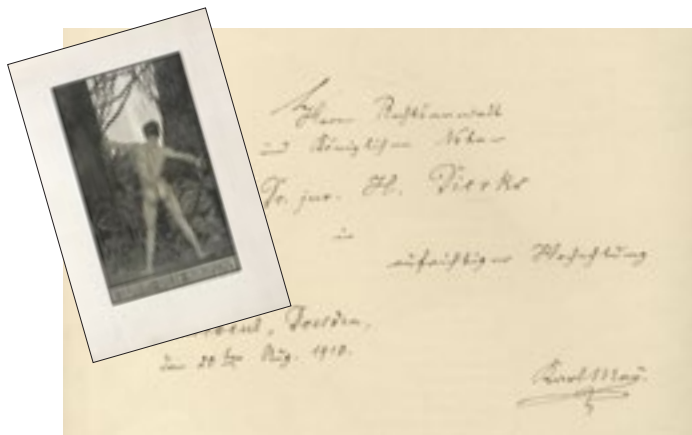 Herrn Rechtsanwalt
und Königlichen Notar
Dr. jur. H. Dierks
in
aufrichtiger Hochachtung
Dresden,
den 20ten Aug. 1910.
Karl May.